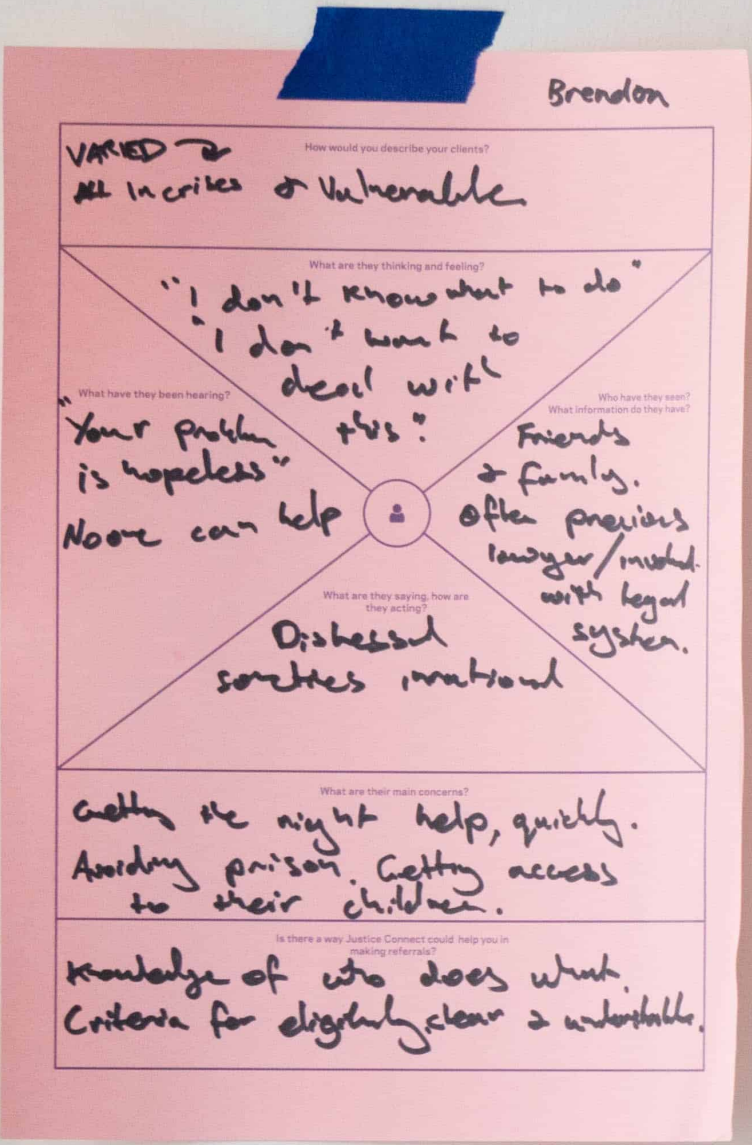 Brendon
How would you describe your clients?
VARIED
ALL In crises & Vulnerable
What are they thinking and feeling?
"I don't know what to do"
"I don't want to
deal with
this"
What have they been hearing?
"Your problem
is hopeless"
Noone can help
Who have they seen?
What information do they have?
Friends
& family.
Often previous
lawyer/involved
with legal
system.
What are they saying, how are
they acting?
Distressed
sometimes irrational
What are their main concerns?
Getting the right help, quickly.
Avoiding prison. Getting access
to their children.
Is there a way Justice Connect could help you in
making referrals?
Knowledge of who does what.
Criteria for eligibility clear & understandable.